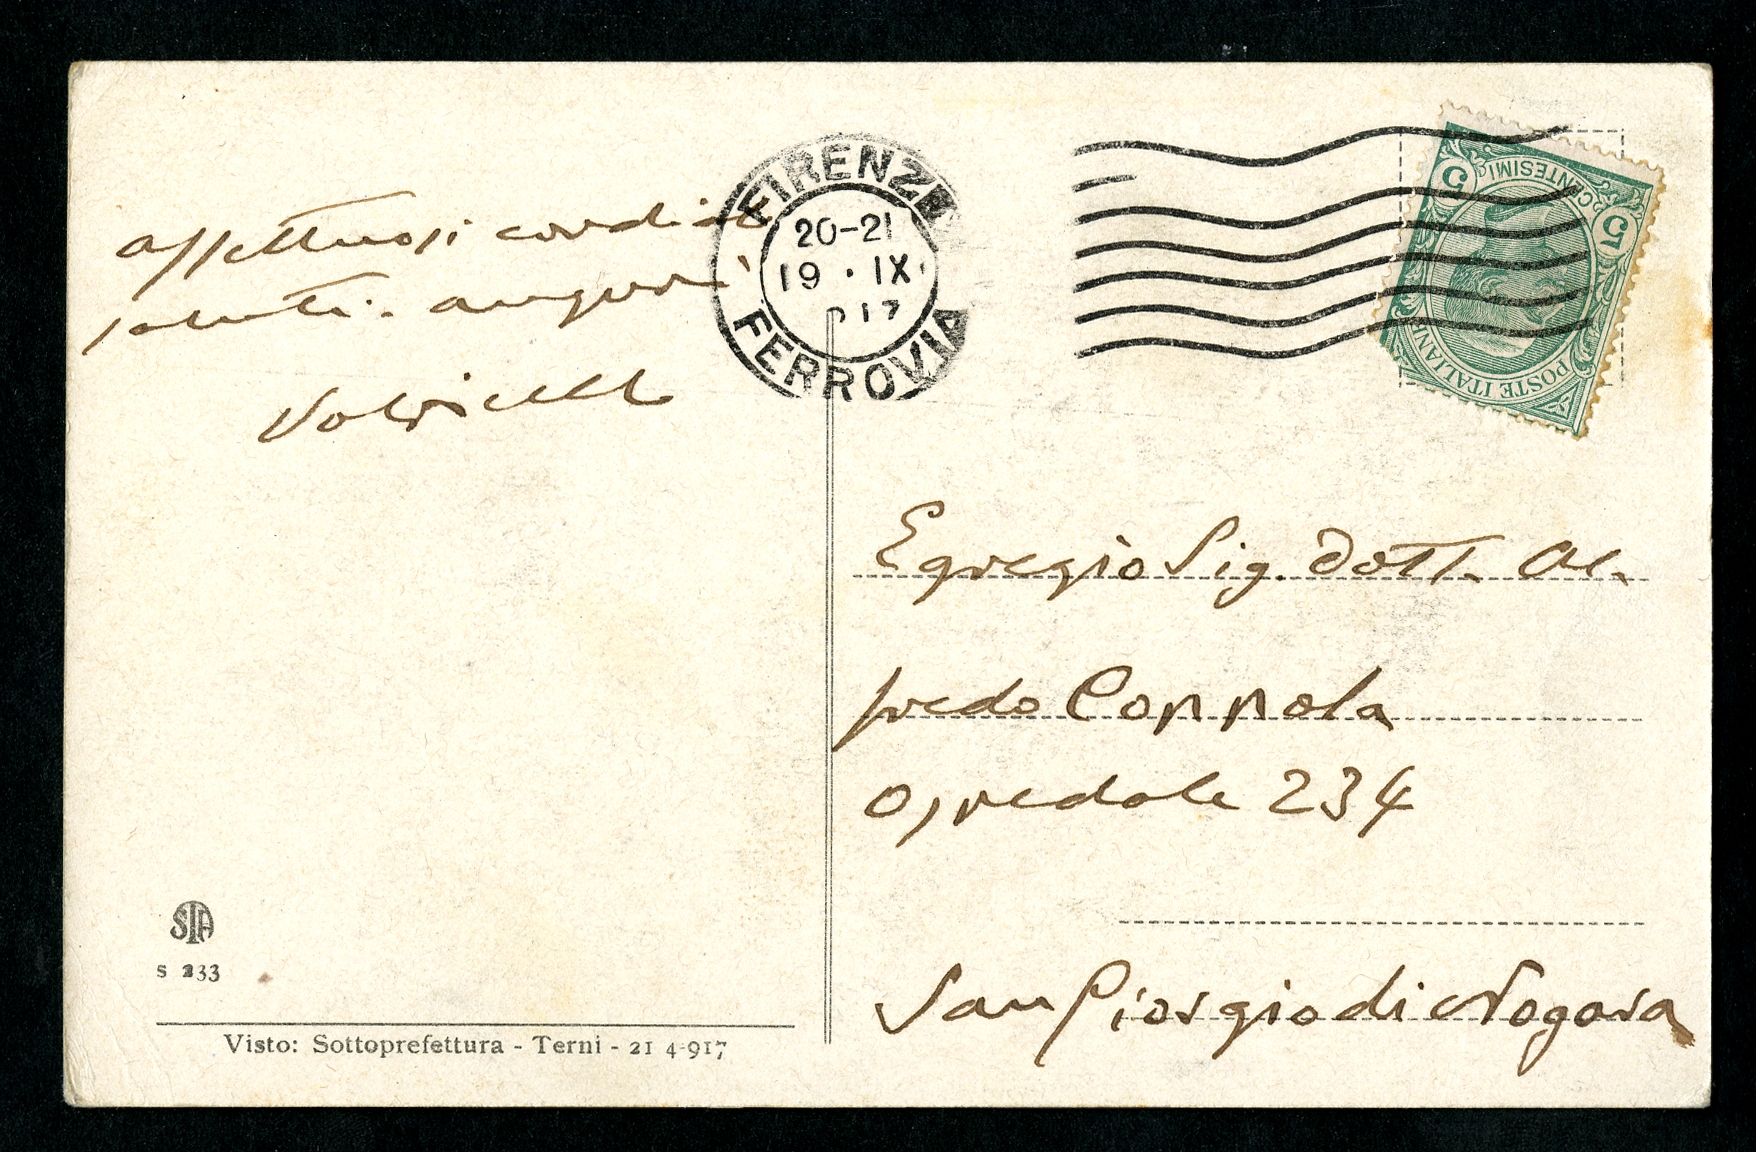 affettuosi cordiali
saluti. auguri
FIRENZE
20-21
19 · IX
917
FERROVIA
5 CENTESIMI 5
POSTE ITALIANE
Egregio Sig. Dott. Al.
fredo Coppola
Ospedale 234
San Giorgio di Nogara
STA
S 233
Visto: Sottoprefettura - Terni - 21 4-917